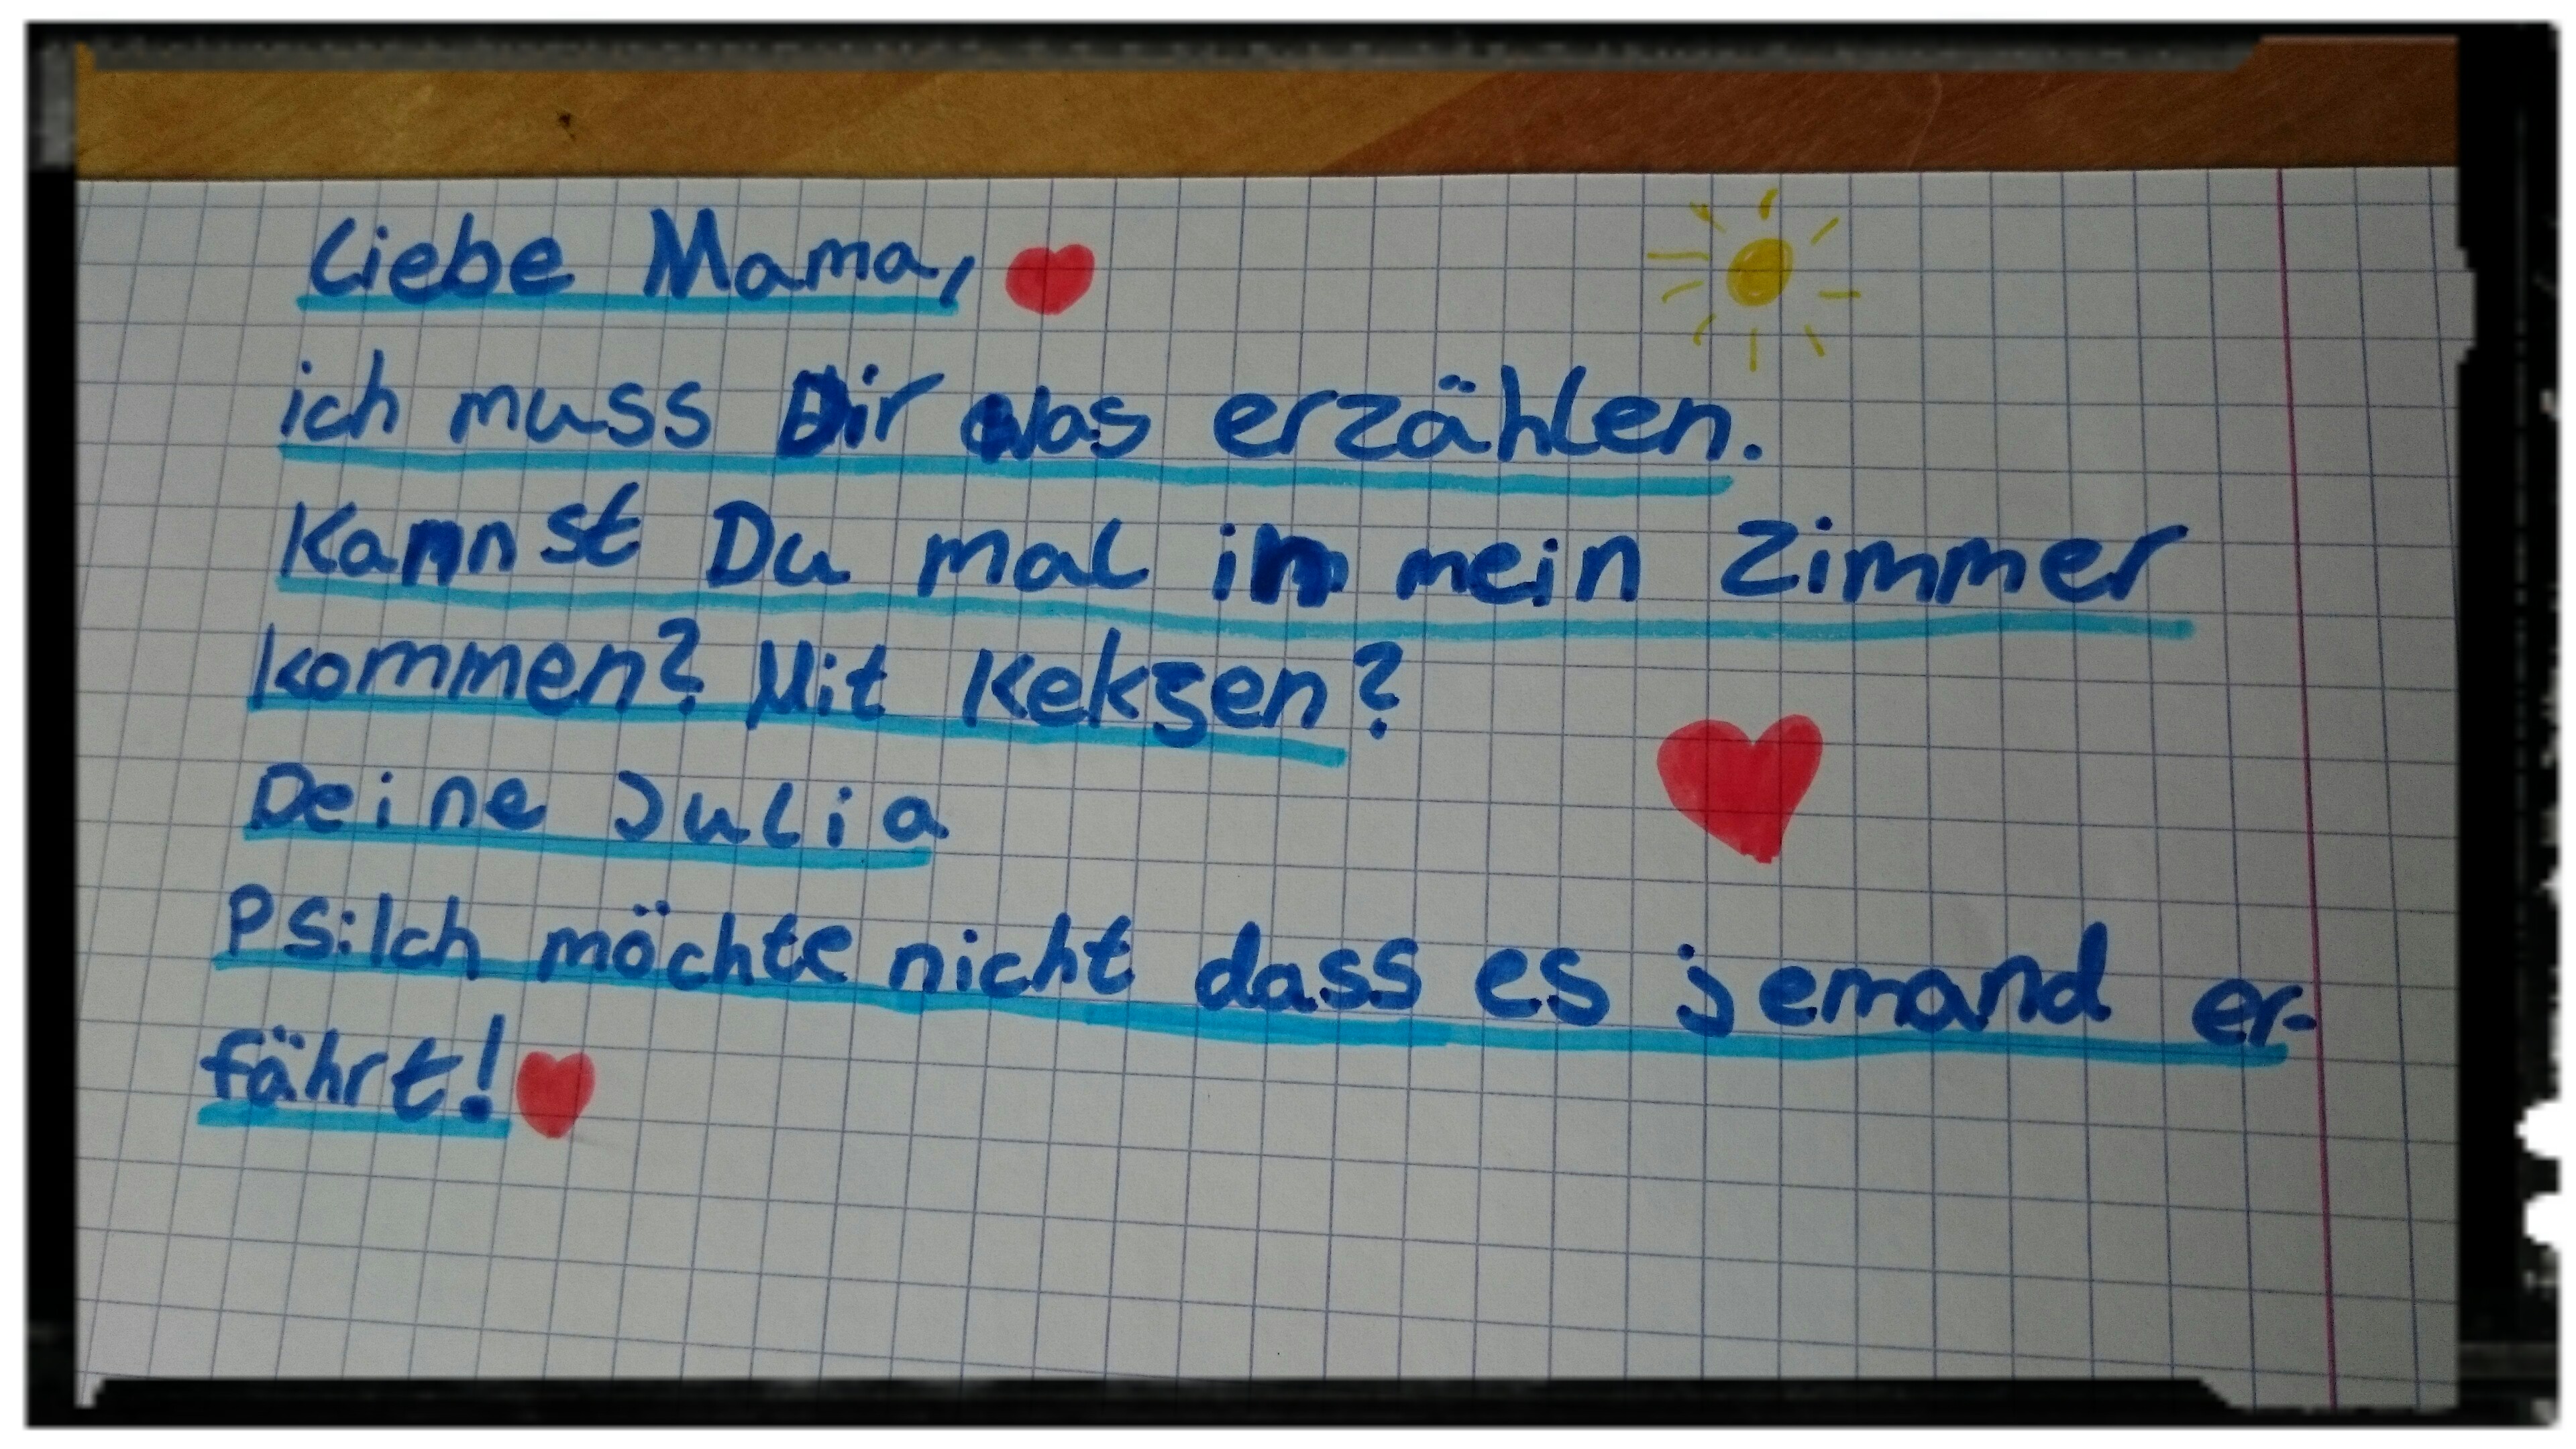 Liebe Mama,
ich muss Dir was erzählen.
Kannst Du mal in mein Zimmer
kommen? Mit Keksen?
Deine Julia
PS: Ich möchte nicht dass es jemand er-
fährt!